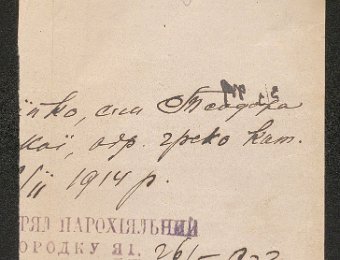 їнко, син Теодора
кої, обр. греко кат.
/ІІ 1914 р.
РЯД ПАРОХІЯЛЬНИЙ
ОРОДКУ ЯГ. 26/-